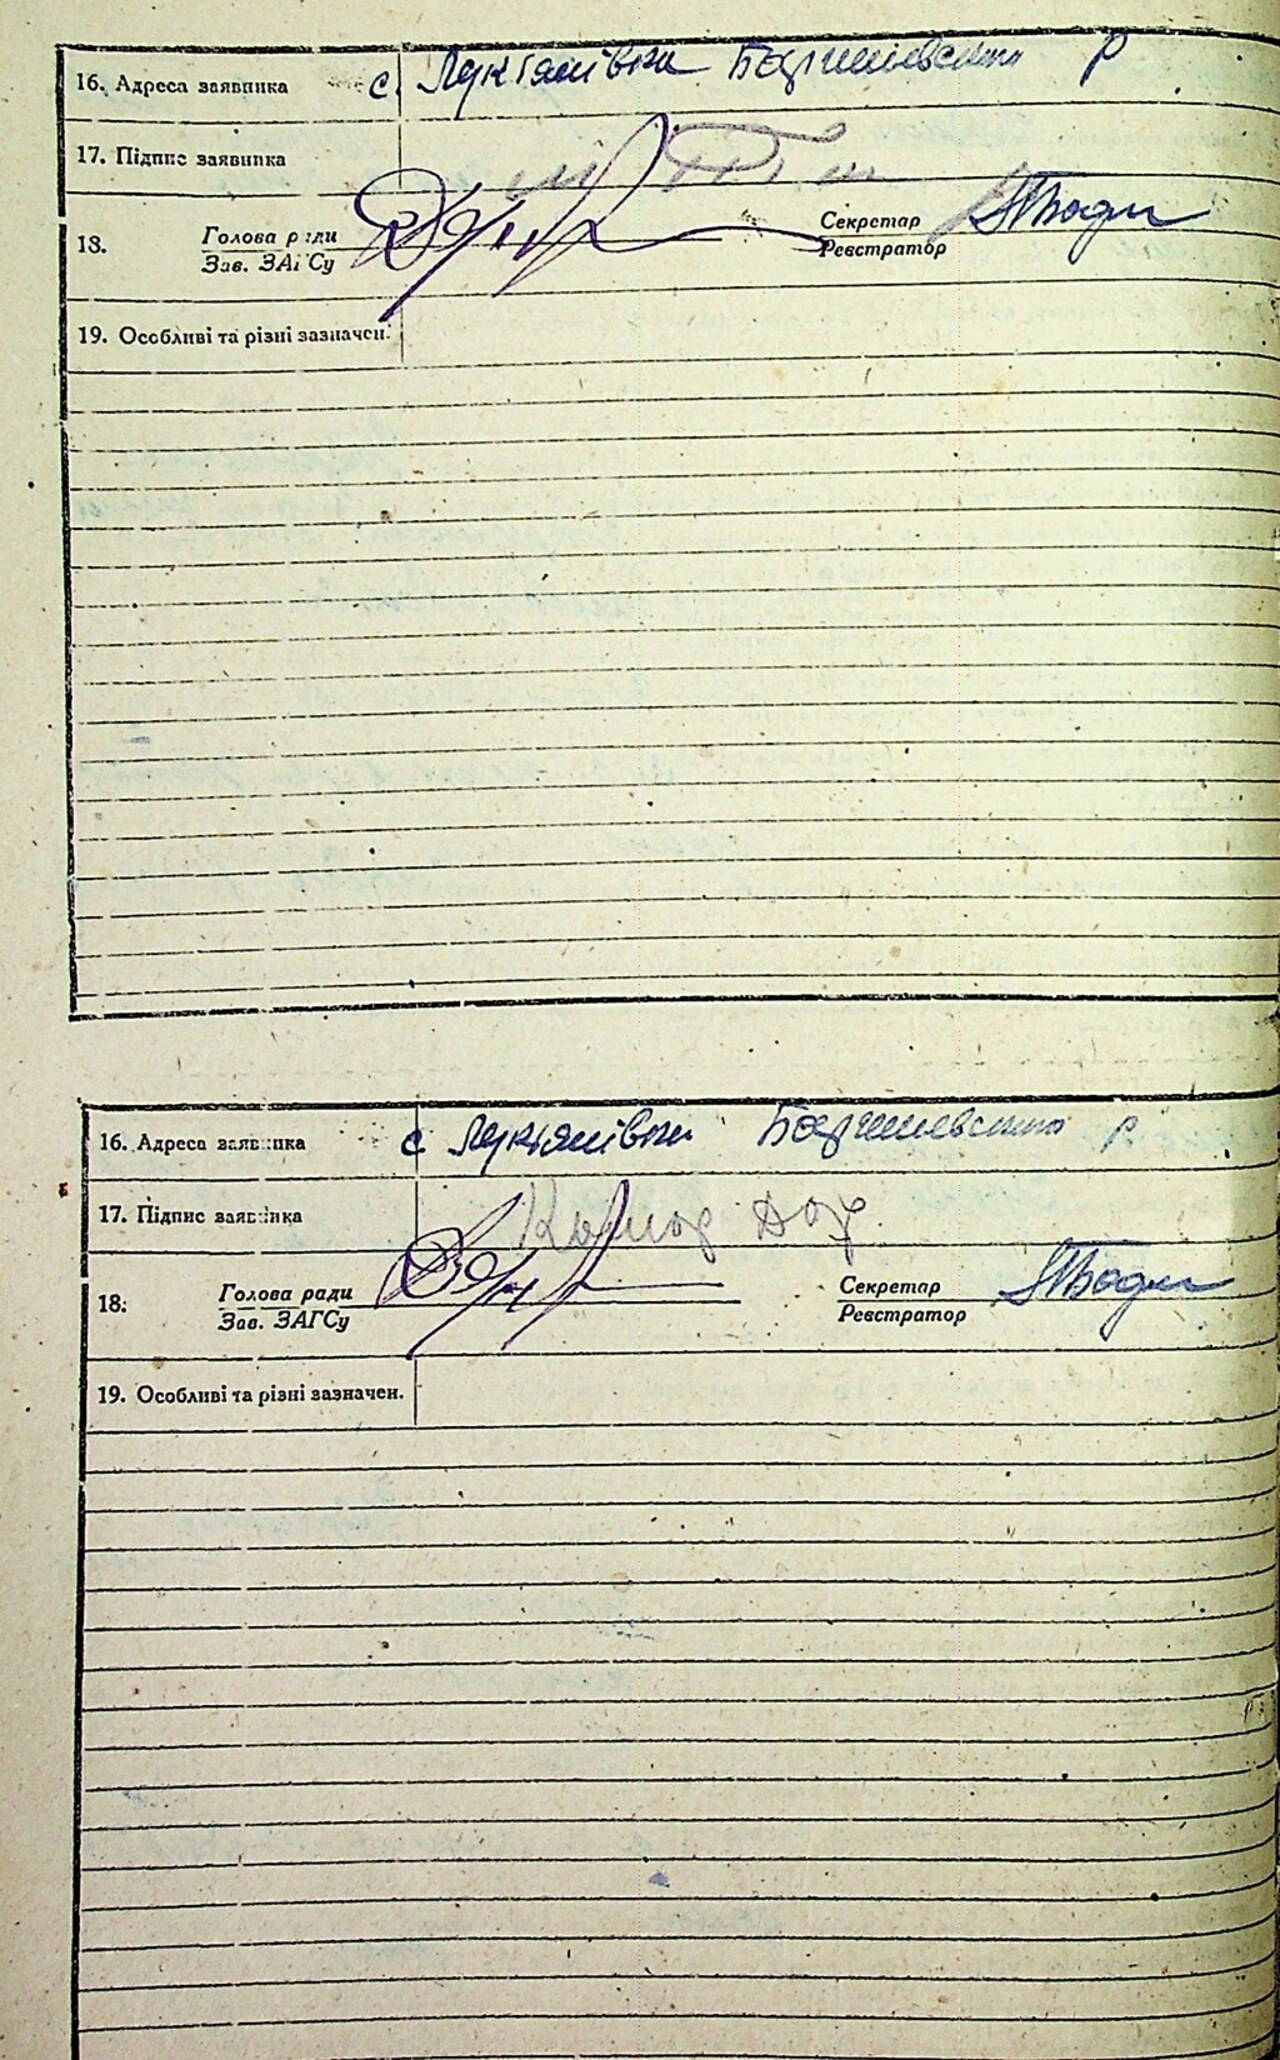 16. Адреса заявника с. Лук'янівка Баришевського р
17. Підпис заявника
18. Голова ради Секретар
Зав. ЗАГСу Реєстратор
19. Особливі та різні зазначен.
16. Адреса заявника с Лук'янівка Баришевського р
17. Підпис заявника
18. Голова ради Секретар
Зав. ЗАГСу Реєстратор
19. Особливі та різні зазначен.